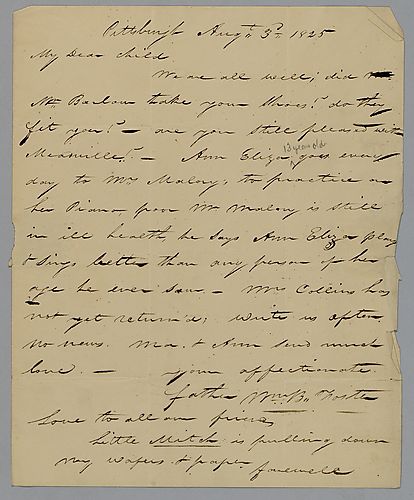 Pittsburgh Augt 3d 1825
My Dear Child
We are all well; did
Mr Barlow take you Shoes? do they
fit you? — are you still pleased with
Meadville? — Ann Eliza 13 years old goes every
day to Mrs Malory, to practice on
her Piano, poor Mr Malory is still
in ill health, he says Ann Eliza plays
& sings better than any person of her
age he ever saw — Mrs Collins has
not yet return'd; write us often
no news. Ma. & Ann send much
love. — your affectionate
father Wm B. Foster
Love to all our friends
Little Mitch is pulling down
my wafers & paper
farewell